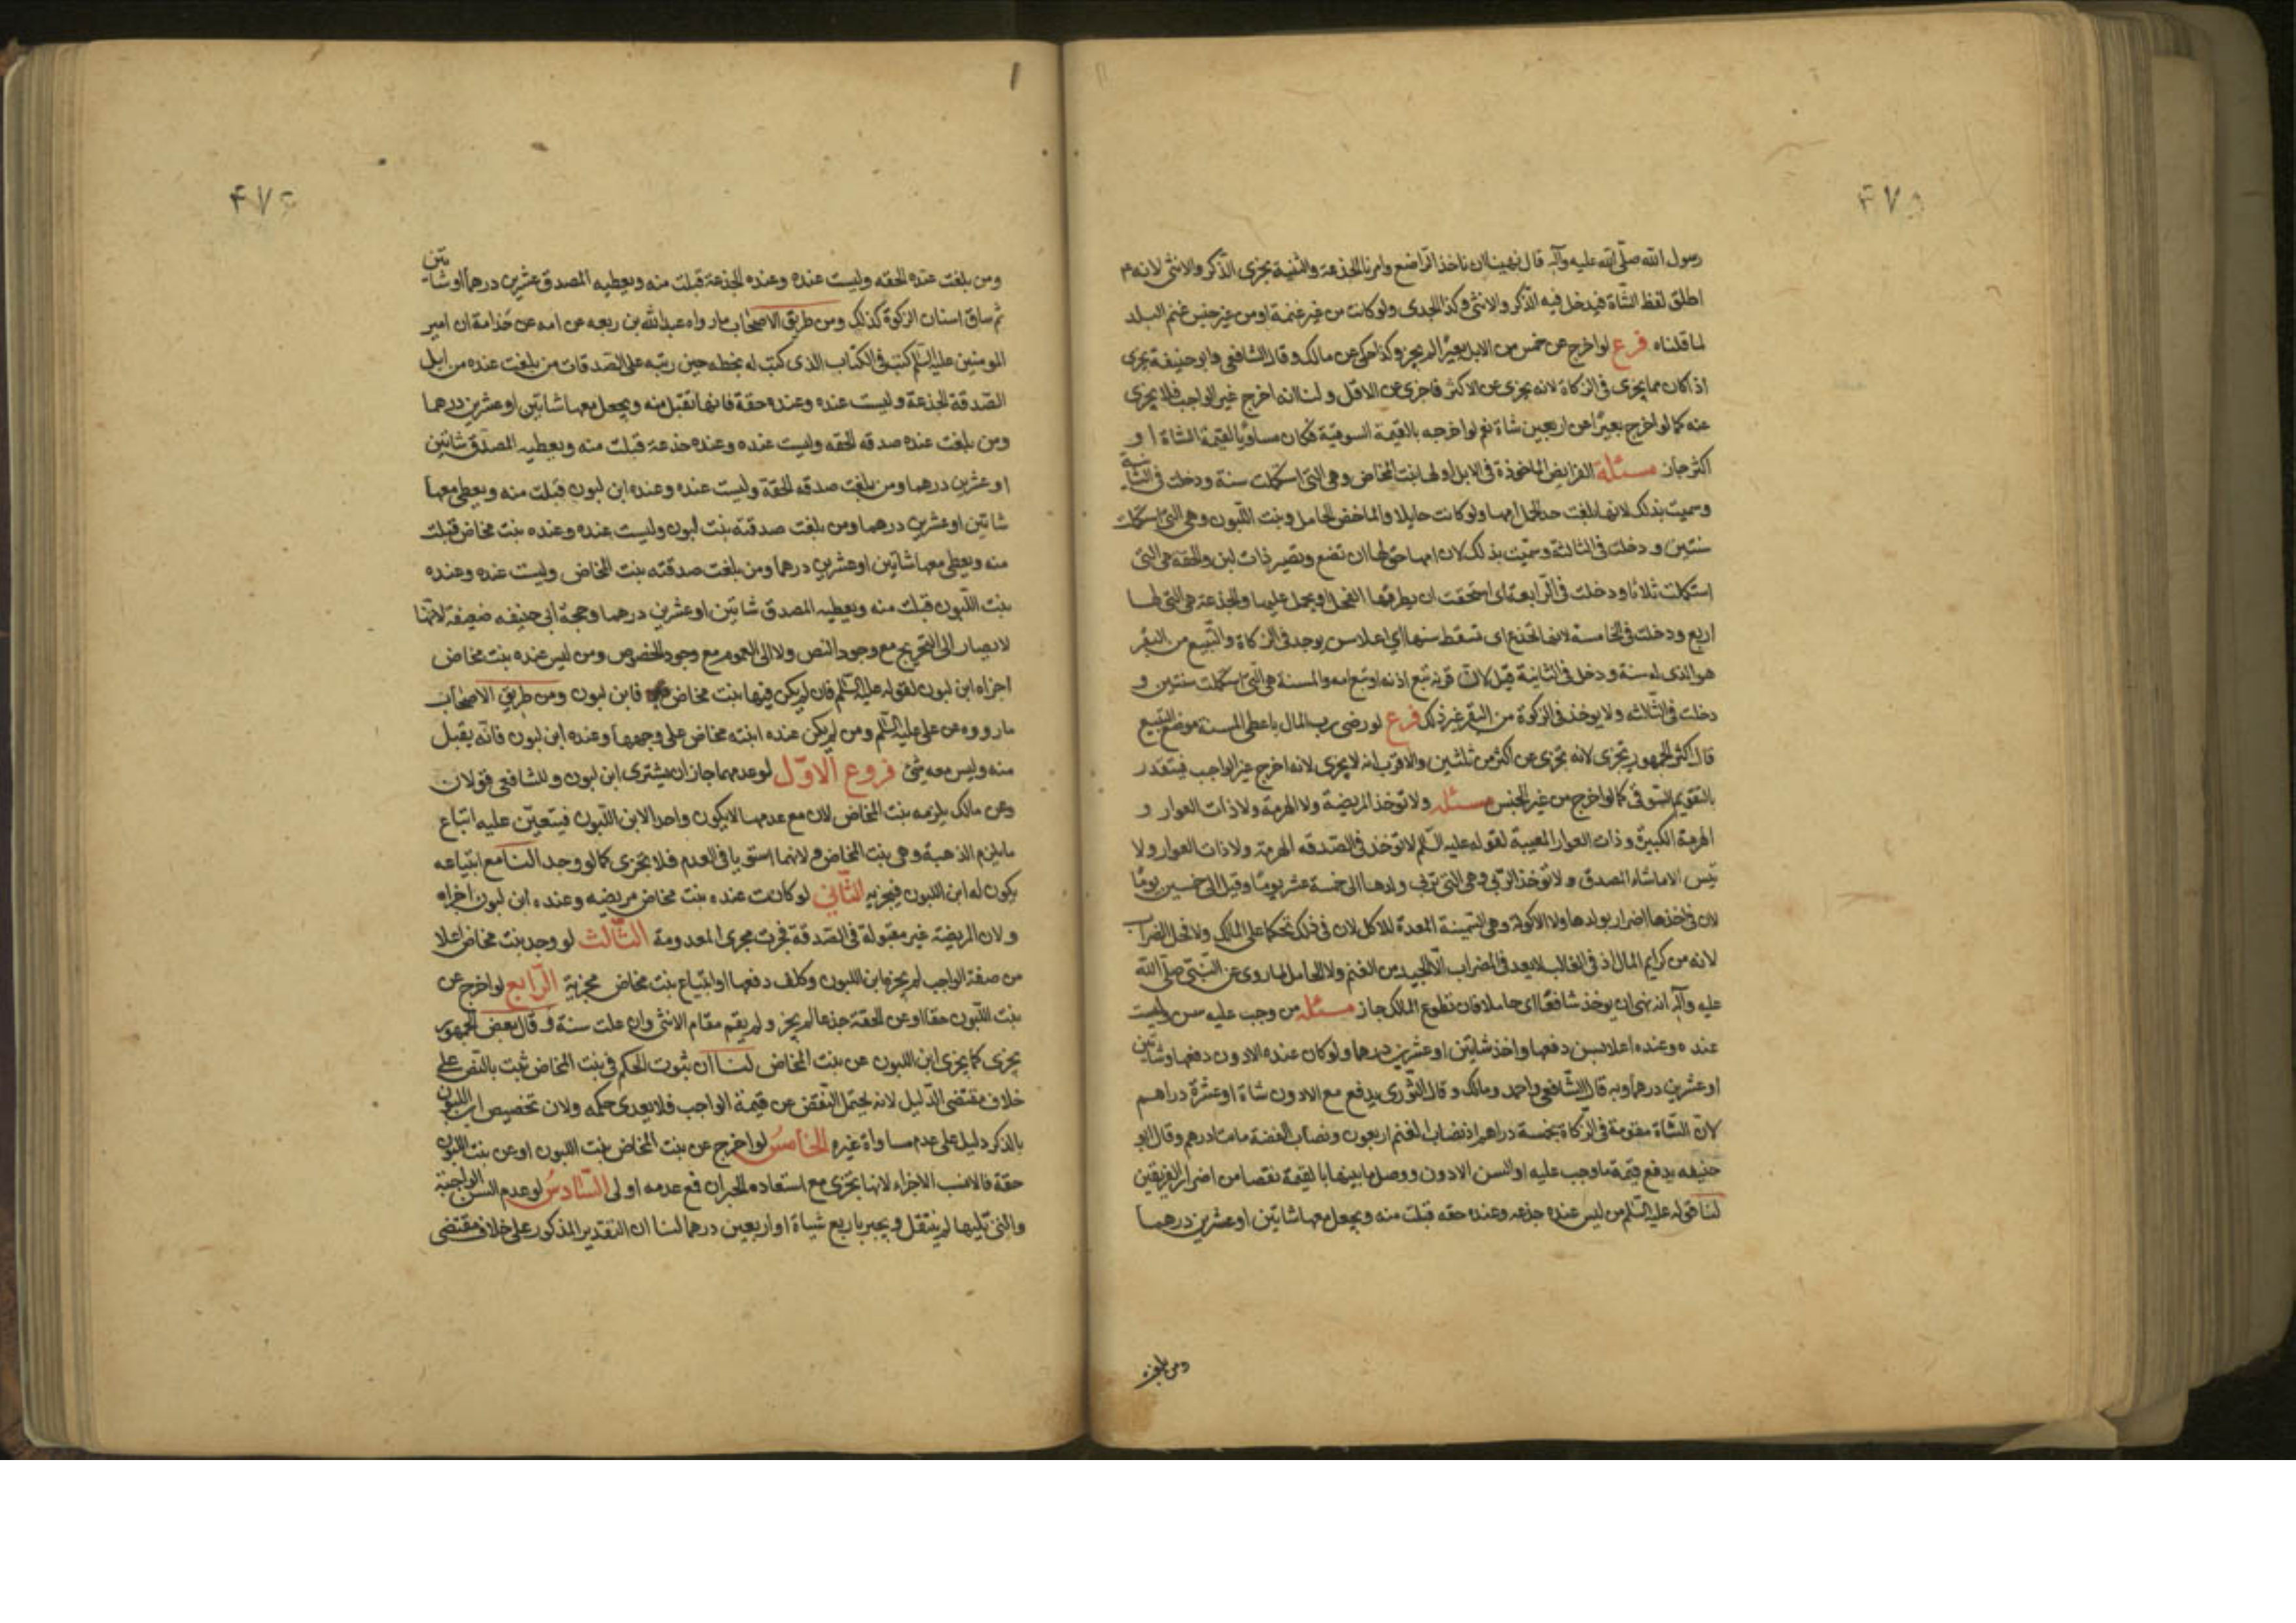 رسول الله صلّى الله عليه وآله قال نهينا ان ناخذ الراضع وامرنا بالجذعة والثنية يجزى الذكر والانثى لانه م
اطلق لفظ الشاة فيدخل فيه الذكر والانثى وكذا الجدى ولو كانت من غير غنمة او من غير جنس غنم البلد
لما قلناه فرع لو اخرج عن خمس من الابل بعيرًا لم يجز وكذا حكى عن مالك وقال الشافعى وابو حنيفة يجزى
اذا كان مما يجزى فى الزكاة لانه يجزى عن الاكثر فاجزى عن الاقل ولنا انه اخرج غير الواجب فلا يجزى
عنه كما لو اخرج بعيرًا عن اربعين شاة نعم لو اخرجه بالقيمة السوقية فكان مساويًا لقيمة الشاة او
اكثر جاز مسئلة الفرايض الماخوذة فى الابل اولها بنت المخاض وهى التى استكملت سنة ودخلت فى الثانية
وسميت بذلك لانها بلغت حد الحمل امها ولو كانت حايلا والماخض الحامل وبنت اللبون وهى التى استكملت
سنتين ودخلت فى الثالثة وسميت بذلك لان امها حق لها ان تضع وتصير ذات لبن والحقة هى التى
استكملت ثلاثا ودخلت فى الرابعة اى استحقت ان يطرقها الفحل او يحمل عليها والجذعة هى التى لها
اربع ودخلت فى الخامسة لانها تجذع اى تسقط سنها اى اعلا سن يوجد فى الزكاة والتبيع من البقر
هو الذى له سنة ودخل فى الثانية قيل لان قرنه تبع اذنه او تبع امه والمسنة هى التى استكملت سنتين و
دخلت فى الثالثه ولا يوخذ فى الزكوة من البقر غير ذلك فرع لو رضى رب المال باعطى المسنة موضع التبيع
قال اكثر الجمهور تجزى لانه تجزى عن اكثر من ثلثين والاقرب انه لا يجزى لانه اخرج غير الواجب فيتقدر
بالتقويم السوقى كما لو اخرج من غير الجنس مسئله ولا توخذ المريضة ولا الهرمة ولا ذات العوار و
الهرمة الكبيرة وذات العوار المعيبة لقوله عليه السّلم لا توخذ فى الصّدقه الهرمة ولا ذات العوار ولا
تيس الا ما شاء المصدق ولا توخذ الربى وهى التى تربى ولدها الى خمسة عشر يومًا وقيل الى خمسين يومًا
لان فى اخذها اضرار بولدها ولا الاكولة وهى السّمينة المعدة للاكل لان فى ذلك تحكما على المالك ولا فحل الضراب
لانه من كرايم المال اذ فى الغالب لا يعد فى الضراب الا الجيد من الغنم ولا الحامل لما روى عن النبى صلّى الله
عليه وآله انه نهى ان يوخذ شافعًا اى حاملا فان تطوع المالك جاز مسئله من وجب عليه سن وليست
عنده وعنده اعلا بسن دفعها واخذ شاتين او عشرين درهما ولو كان عنده الادون دفعها وشاتين
او عشرين درهما وبه قال الشّافعى واحمد ومالك وقال الثّورى يدفع مع الادون شاة او عشرة دراهم
لان الشّاة مقومة فى الزكاة بخمسة دراهم اذ نصاب الغنم اربعون ونصاب الفضة مائتا درهم وقال ابو
حنيفه يدفع قيمة ما وجب عليه او السن الادون ووصل ما بينها بالقيمة نقصا من اضرار الفريقين
لنا قوله عليه السّلم من ليس عنده جذعه وعنده حقه قبلت منه ويجعل معها شاتين او عشرين درهما
ومن بلغت
ومن بلغت عنده الحقه وليست عنده وعنده الجذعة قبلت منه ويعطيه المصدق عشرين درهما او شاتين
ثم ساق اسنان الزكوة كذلك ومن طريق الاصحاب ما رواه عبد الله بن ربعه عن امه عن جدامة ان امير
المومنين عليه السّلم كتب فى الكتاب الذى كتب له بخطه حين رتبه على الصّدقات من بلغت عنده من ابل
الصّدقة الجذعة وليست عنده وعنده حقة فانها تقبل منه ويجعل معها شاتين او عشرين درهما
ومن بلغت عنده صدقه الحقه وليست عنده وعنده جذعة قبلت منه ويعطيه المصدّق شاتين
او عشرين درهما ومن بلغت صدقه الحقة وليست عنده وعنده ابن لبون قبلت منه ويعطى معها
شاتين او عشرين درهما ومن بلغت صدقته بنت لبون وليست عنده وعنده بنت مخاض قبلت
منه ويعطى معها شاتين او عشرين درهما ومن بلغت صدقته بنت المخاض وليست عنده وعنده
بنت اللّبون قبلت منه ويعطيه المصدق شاتين او عشرين درهما وحجة ابى حنيفه ضعيفة لانّها
لا يصار الى التخريج مع وجود النص ولا الى العموم مع وجود الخصوص ومن ليس عنده بنت مخاض
اجزاه ابن لبون لقوله عليه السّلم فان لم يكن فيها بنت مخاض فابن لبون ومن طريق الاصحاب
ما رووه عن على عليه السّلم ومن لم يكن عنده ابنة مخاض على وجهها وعنده ابن لبون فانّه يقبل
منه وليس معه شئ فروع الاوّل لو عدمهما جاز ان يشترى ابن لبون وللشافعى قولان
وعن مالك يلزمه بنت المخاض لان مع عدمها لا يكون واحد الا ابن اللّبون فيتعيّن عليه ابتياع
ما يلزم الذهبة وهى بنت المخاض ولانهما استويا فى العدم فلا تجزى كما لو وجد النا مع ابتياعه
يكون له ابن اللبون فيجزيه الثّانى لو كانت عنده بنت مخاض مريضه وعنده ابن لبون اجزاه
ولان المريضة غير مقبولة فى الصّدقة فجرت مجرى المعدومة الثّالث لو وجد بنت مخاض اعلا
من صفة الواجب لم يجزه ابن اللبون وكلف دفعها او ابتياع بنت مخاض مجزية الرّابع لو اخرج عن
بنت اللّبون حقا او عن الحقة جذعا لم يجز ولم يقم مقام الانثى وان علت سنة وقال بعض الجمهور
يجزى كما يجزى ابن اللبون عن بنت المخاض لنا ان ثبوت الحكم فى بنت المخاض ثبت بالنّص على
خلاف مقتضى الدّليل لانه يحتمل النّقض عن قيمة الواجب فلا يعدى حكمه ولان تخصيص ابن اللبون
بالذكر دليل على عدم مساواة غيره الخامسُ لو اخرج عن بنت المخاض بنت اللبون او عن بنت اللبون
حقة فالانسب الاجزاء لانها تجزى مع استعاده الجبران فمع عدمه اولى السّادسُ لو عدم السن الواجبة
والتى تليها لم ينتقل ويجبر باربع شياة او اربعين درهما لنا ان التقدير المذكور على خلاف مقتضى